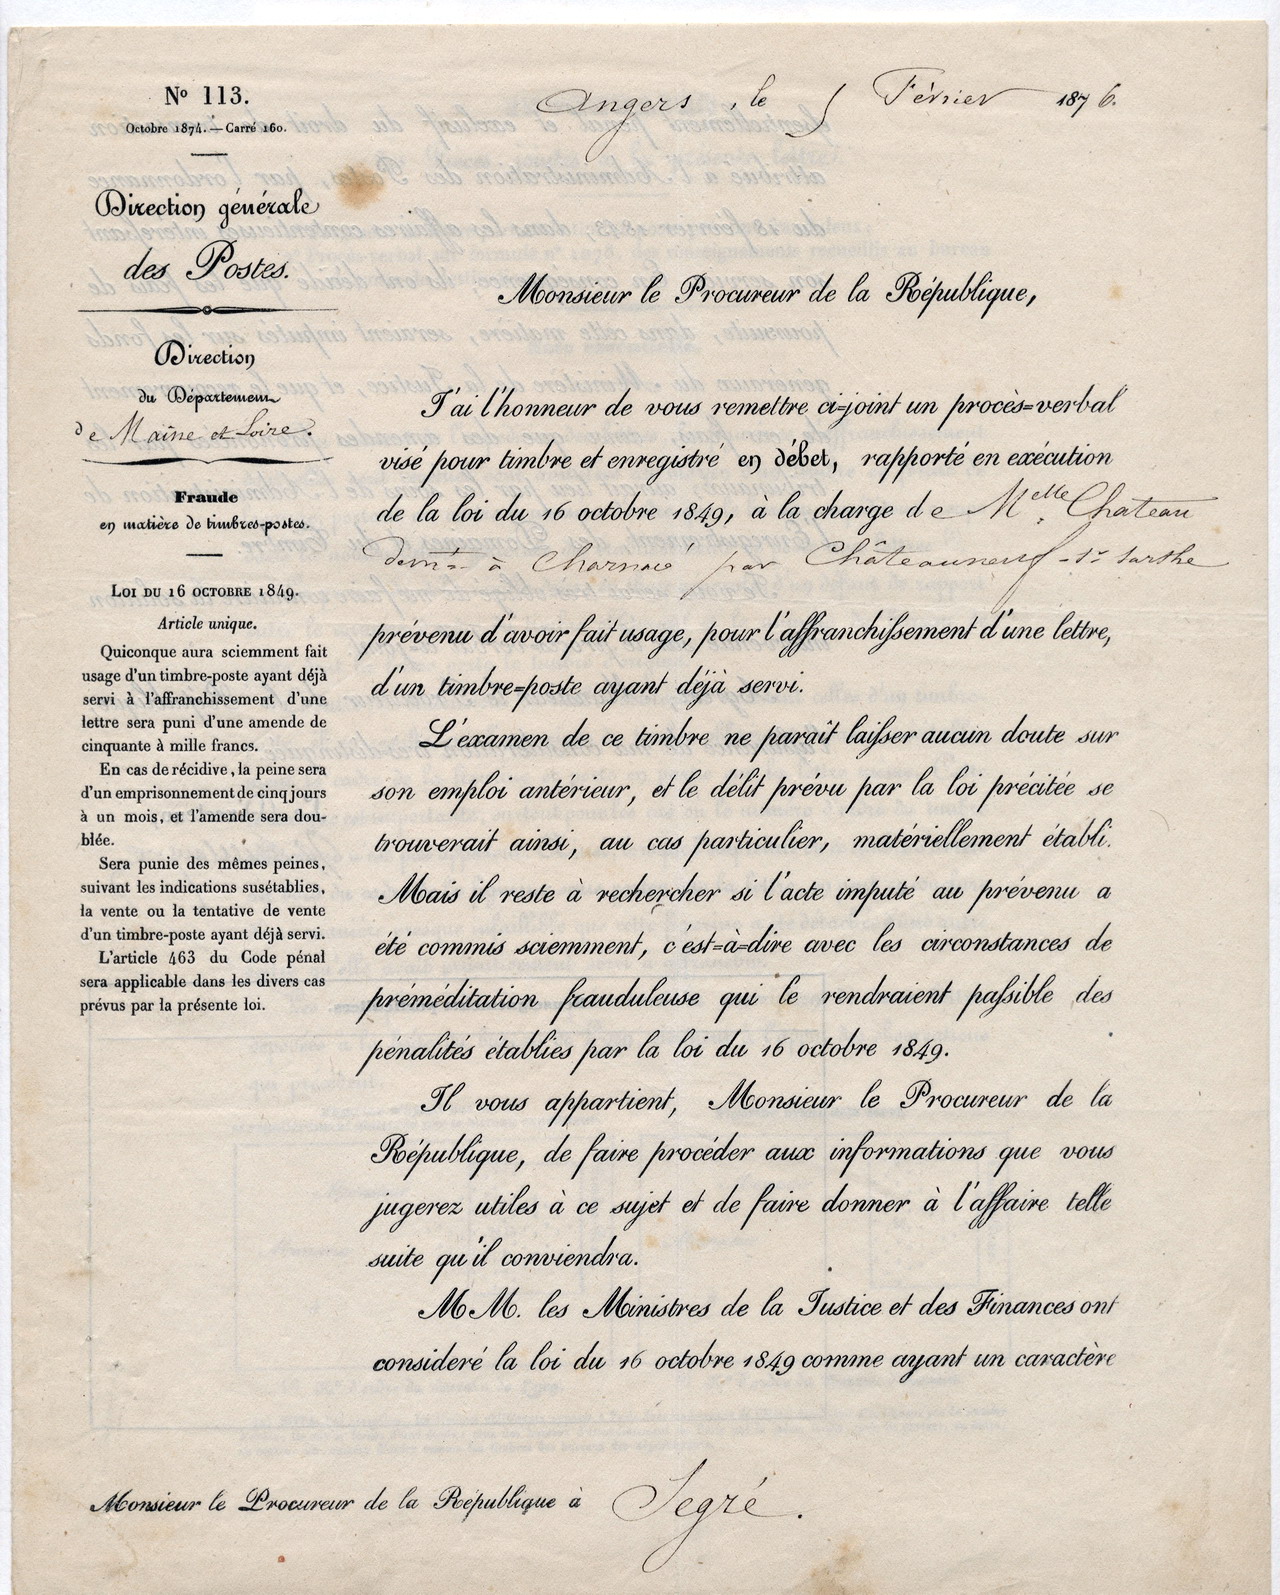 Nº 113.
Octobre 1874. — Carré 160.
Direction générale
des Postes.
Direction
du Département
de Maine et Loire.
Fraude
en matière de timbres-postes.
LOI DU 16 OCTOBRE 1849.
Article unique.
Quiconque aura sciemment fait
usage d'un timbre-poste ayant déjà
servi à l'affranchissement d'une
lettre sera puni d'une amende de
cinquante à mille francs.
En cas de récidive, la peine sera
d'un emprisonnement de cinq jours
à un mois, et l'amende sera dou-
blée.
Sera punie des mêmes peines,
suivant les indications susétablies,
la vente ou la tentative de vente
d'un timbre-poste ayant déjà servi.
L'article 463 du Code pénal
sera applicable dans les divers cas
prévus par la présente loi.
Angers, le 5 Février 1876.
Monsieur le Procureur de la République,
J'ai l'honneur de vous remettre ci=joint un procès=verbal
visé pour timbre et enregistré en débet, rapporté en exécution
de la loi du 16 octobre 1849, à la charge de Melle Chateau
demt à par Châteauneuf-sr-Sarthe
prévenu d'avoir fait usage, pour l'affranchissement d'une lettre,
d'un timbre=poste ayant déjà servi.
L'examen de ce timbre ne paraît laisser aucun doute sur
son emploi antérieur, et le délit prévu par la loi précitée se
trouverait ainsi, au cas particulier, matériellement établi.
Mais il reste à rechercher si l'acte imputé au prévenu a
été commis sciemment, c'est=à=dire avec les circonstances de
préméditation frauduleuse qui le rendraient passible des
pénalités établies par la loi du 16 octobre 1849.
Il vous appartient, Monsieur le Procureur de la
République, de faire procéder aux informations que vous
jugerez utiles à ce sujet et de faire donner à l'affaire telle
suite qu'il conviendra.
MM. les Ministres de la Justice et des Finances ont
consideré la loi du 16 octobre 1849 comme ayant un caractère
Monsieur le Procureur de la République à Segré.